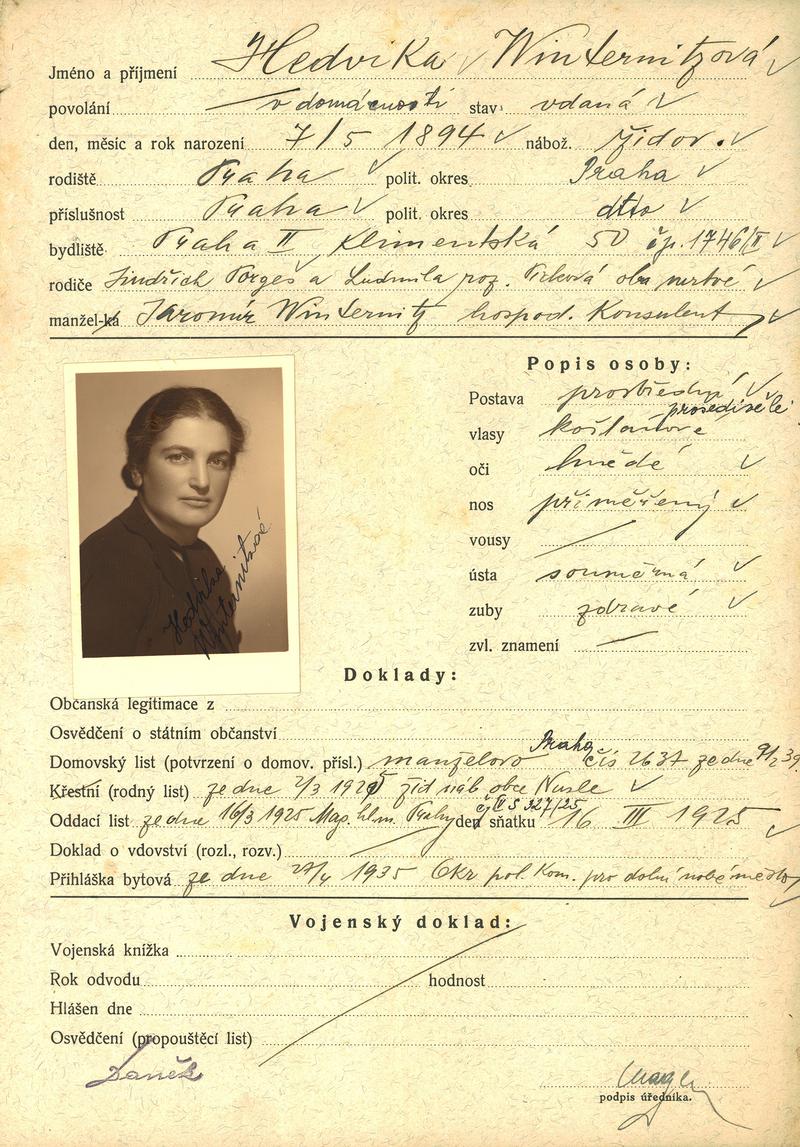 Jméno a příjmení Hedvika Winternitzová
povolání v domácnosti stav: vdaná
den, měsíc a rok narození 7/5 1894 nábož. židov.
rodiště Praha polit. okres Praha
příslušnost Praha polit. okres dtto
bydliště Praha II Klimentská 50 čp. 1746/II
rodiče Jindřich Porges a Ludmila roz. oba mrtvé
manžel-ka Jaromír Winternitz hospod. Konsulent
Popis osoby:
Postava prostřední
prosedivělé
vlasy kaštanové
oči hnědé
nos přiměřený
vousy
ústa souměrná
zuby zdravé
zvl. znamení
Hedvika
Winternitzová
Doklady:
Občanská legitimace z
Osvědčení o státním občanství
Domovský list (potvrzení o domov. přísl.) manželovo Praha čís 2637 ze dne 9/2 39.
Křestní (rodný list) ze dne 2/3 1925 žid náb obce Nusle
Oddací list ze dne 16/3 1925 Mag. hlm. Prahy den sňatku 16 III 1925
Doklad o vdovství (rozl., rozv.)
Přihláška bytová ze dne 27/4 1935 Okr pol. Kom. pro dolní nové město
Vojenský doklad:
Vojenská knížka
Rok odvodu hodnost
Hlášen dne
Osvědčení (propouštěcí list)
podpis úředníka.